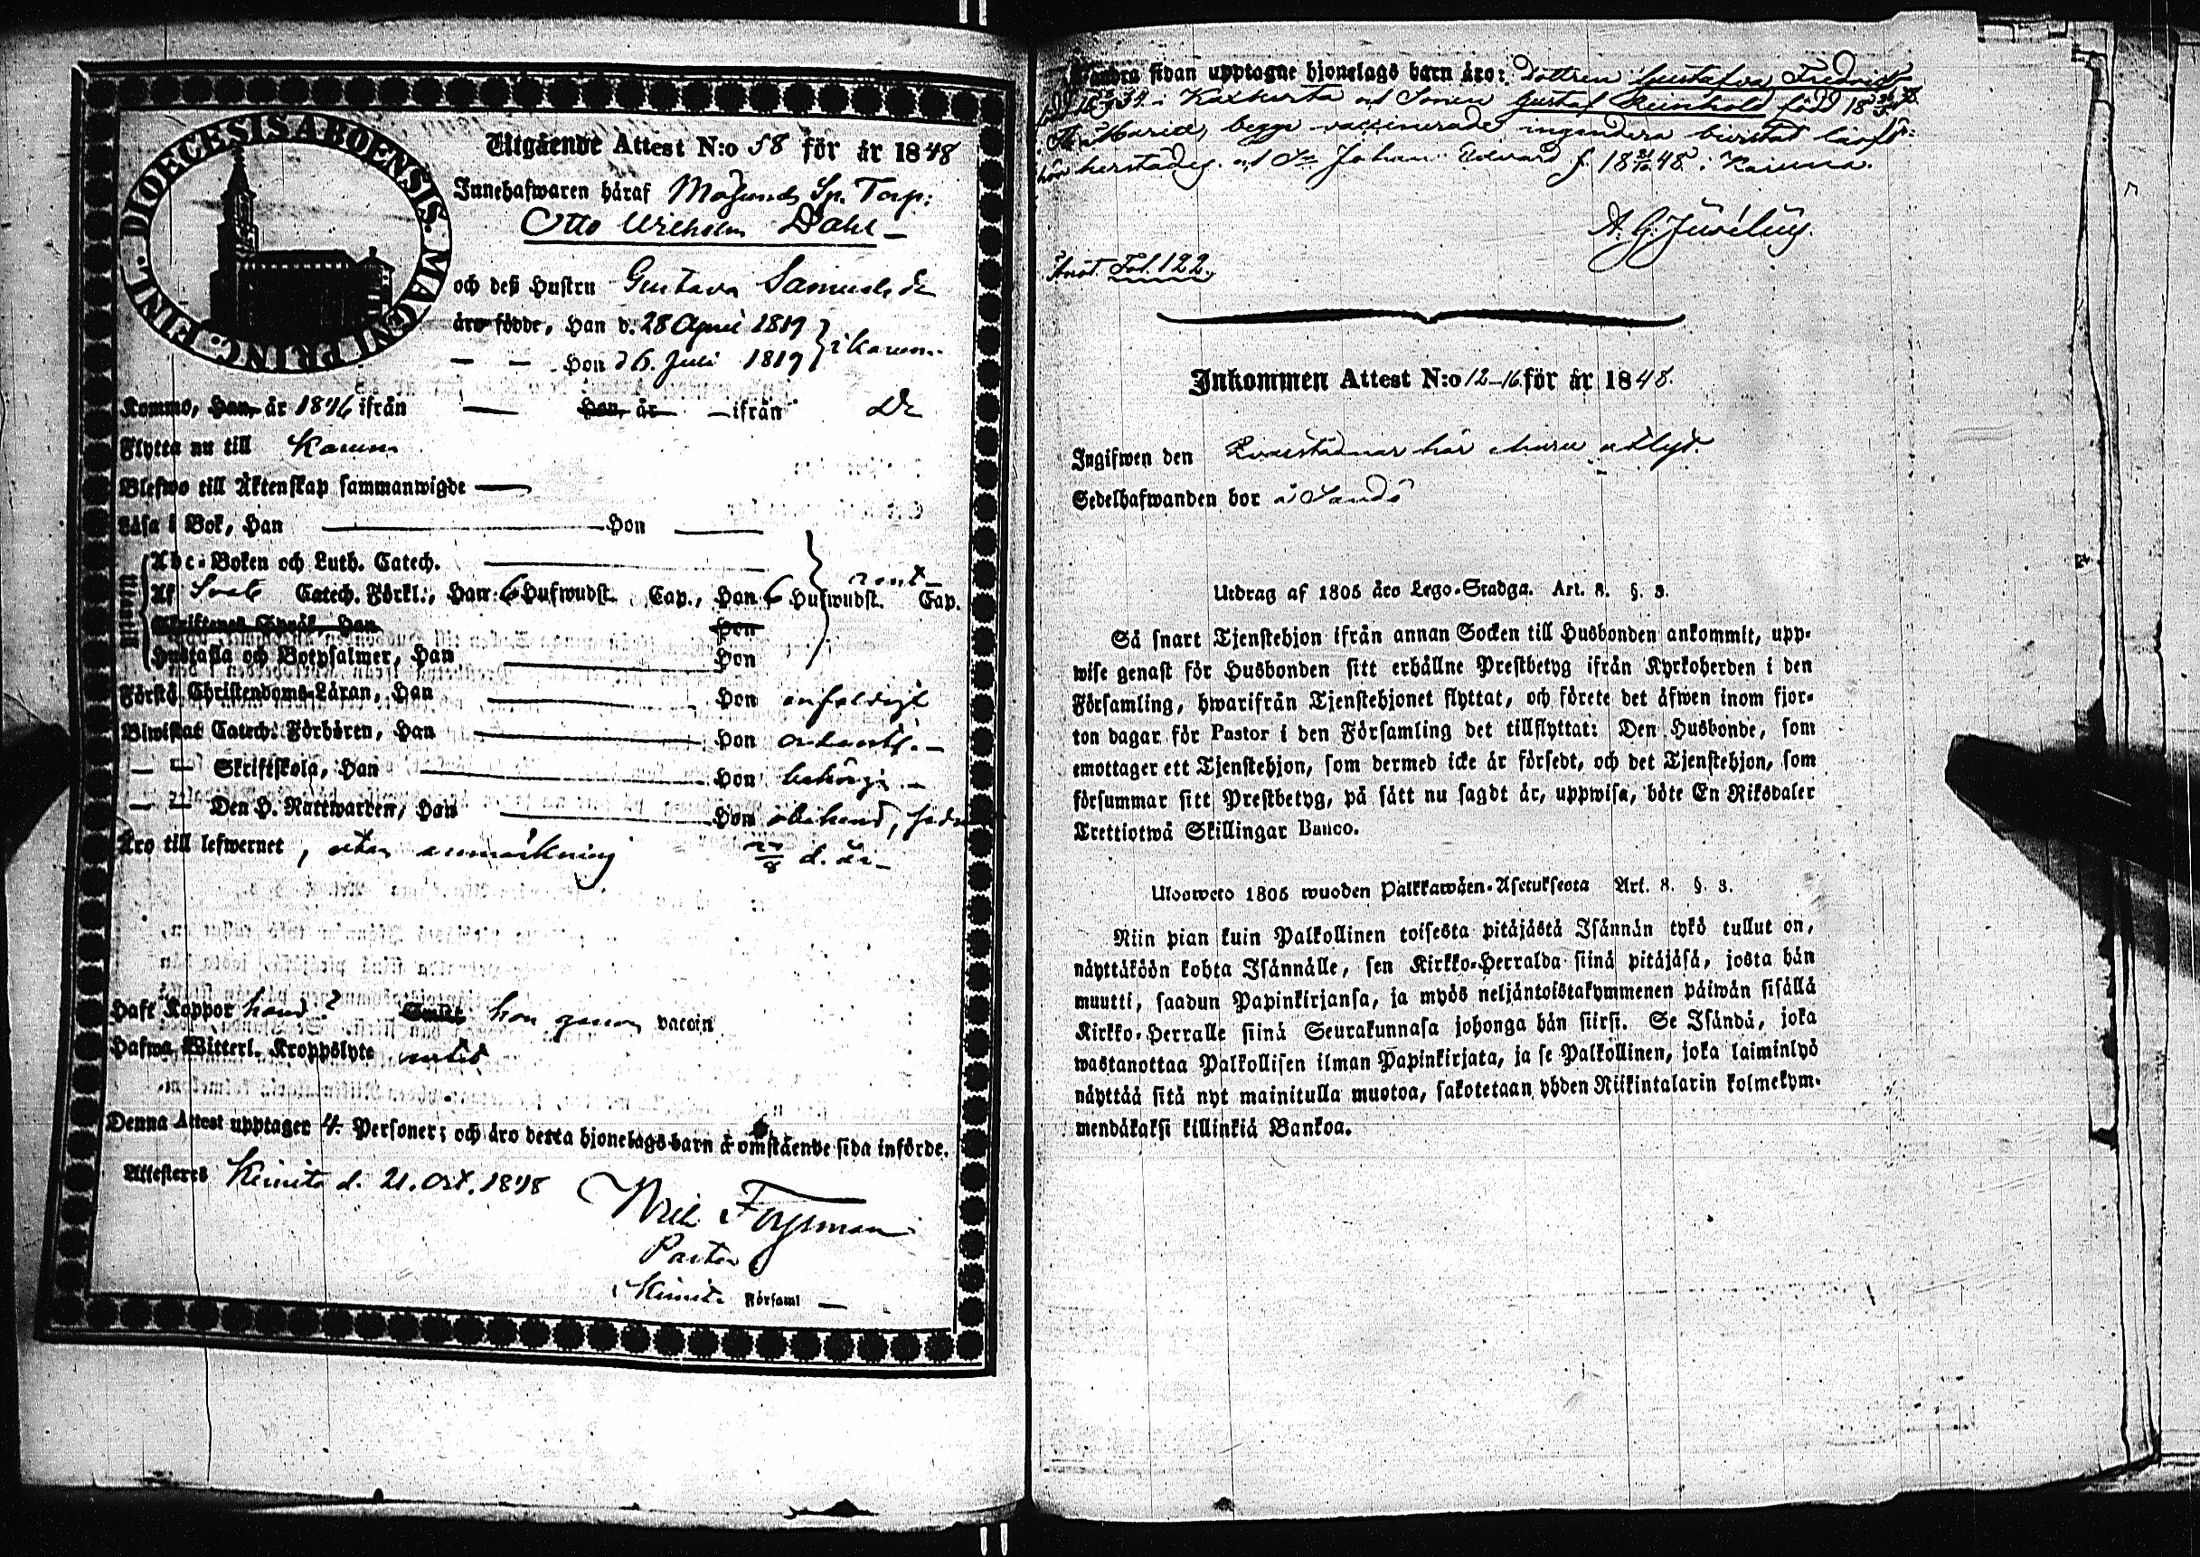 DIOECESIS ABOENSIS. MAGNI PRINC. FINL.
Utgående Attest N:o 58 för år 1848
Innehafwaren häraf Sp. Torp:
Otto Wilhelm Dahl
och deß Hustru Gustava Samuels dr
äro födde, Han d. 28 April 1819
Hon d 6. Juli 1819 i Karuna
Kommo, Han, år 1846 ifrån — Hon, år — ifrån Do
Flytta nu till Karuna
Blefwo till Äktenskap sammanwigde —
Läsa i Bok, Han — Hon —
Utantil
Abc-Boken och Luth. Catech.
Af Catech. Förkl., Han 6 Hufwudst. Cap., Hon 6 Hufwudst. Cap.
Skriftenes Språk, Han Hon
Hustafla och Botpsalmer, Han Hon
Förstå Christendoms-Läran, Han Hon enfaldigt
Biwistat Catech. Förhören, Han Hon ordentl. —
— — Skriftskola, Han Hon behörig —
— — Den H. Nattwarden, Han Hon obehind,
Äro till lefwernet, utan anmärkning d. år —
Haft Koppor hand? Smitt hon genom vaccin
Hafwa Witterl. Kroppslyte
Denna Attest upptager 4 Personer; och äro detta hjonelags barn å omstående sida införde.
Attesteres Kimito d. 21. Oct. 1848
Forsman
Pastor
i Kimito Församl —
sidan upptagne hjonelags barn äro: Dottren Gustafva Fredrica
i och Sonen Gustaf Reinhold född 18
begge vaccinerade ingendera
herstädes. och Sn Johan Edvard f. 18 48 i Karuna.
A. G. Juvelius.
Anot. Fol. 122.
Inkommen Attest N:o 12–16 för år 1848.
Ingifwen den
Sedelhafwanden bor å Sandö
Utdrag af 1805 års Lego-Stadga. Art. 8. §. 3.
Så snart Tjenstehjon ifrån annan Socken till Husbonden ankommit, upp-
wise genast för Husbonden sitt erhållne Prestbetyg ifrån Kyrkoherden i den
Församling, hwarifrån Tjenstehjonet flyttat, och förete det äfwen inom fjor-
ton dagar för Pastor i den Församling det tillflyttat: Den Husbonde, som
emottager ett Tjenstehjon, som dermed icke är försedt, och det Tjenstehjon, som
försummar sitt Prestbetyg, på sätt nu sagdt är, uppwisa, böte En Riksdaler
Trettiotwå Skillingar Banco.
Ulosweto 1805 wuoden Palkkawäen-Asetuksesta Art. 8. §. 3.
Niin pian kuin Palkollinen toisesta pitäjästä Isännän tykö tullut on,
näyttäköön kohta Isännälle, sen Kirkko-Herralda siinä pitäjäsä, josta hän
muutti, saadun Papinkirjansa, ja myös neljäntoistakymmenen päiwän sisällä
Kirkko-Herralle siinä Seurakunnasa johonga hän siirsi. Se Isändä, joka
wastanottaa Palkollisen ilman Papinkirjata, ja se Palkollinen, joka laiminlyö
näyttää sitä nyt mainitulla muotoa, sakotetaan yhden Riikintalarin kolmekym-
mendäkaksi killinkiä Bankoa.